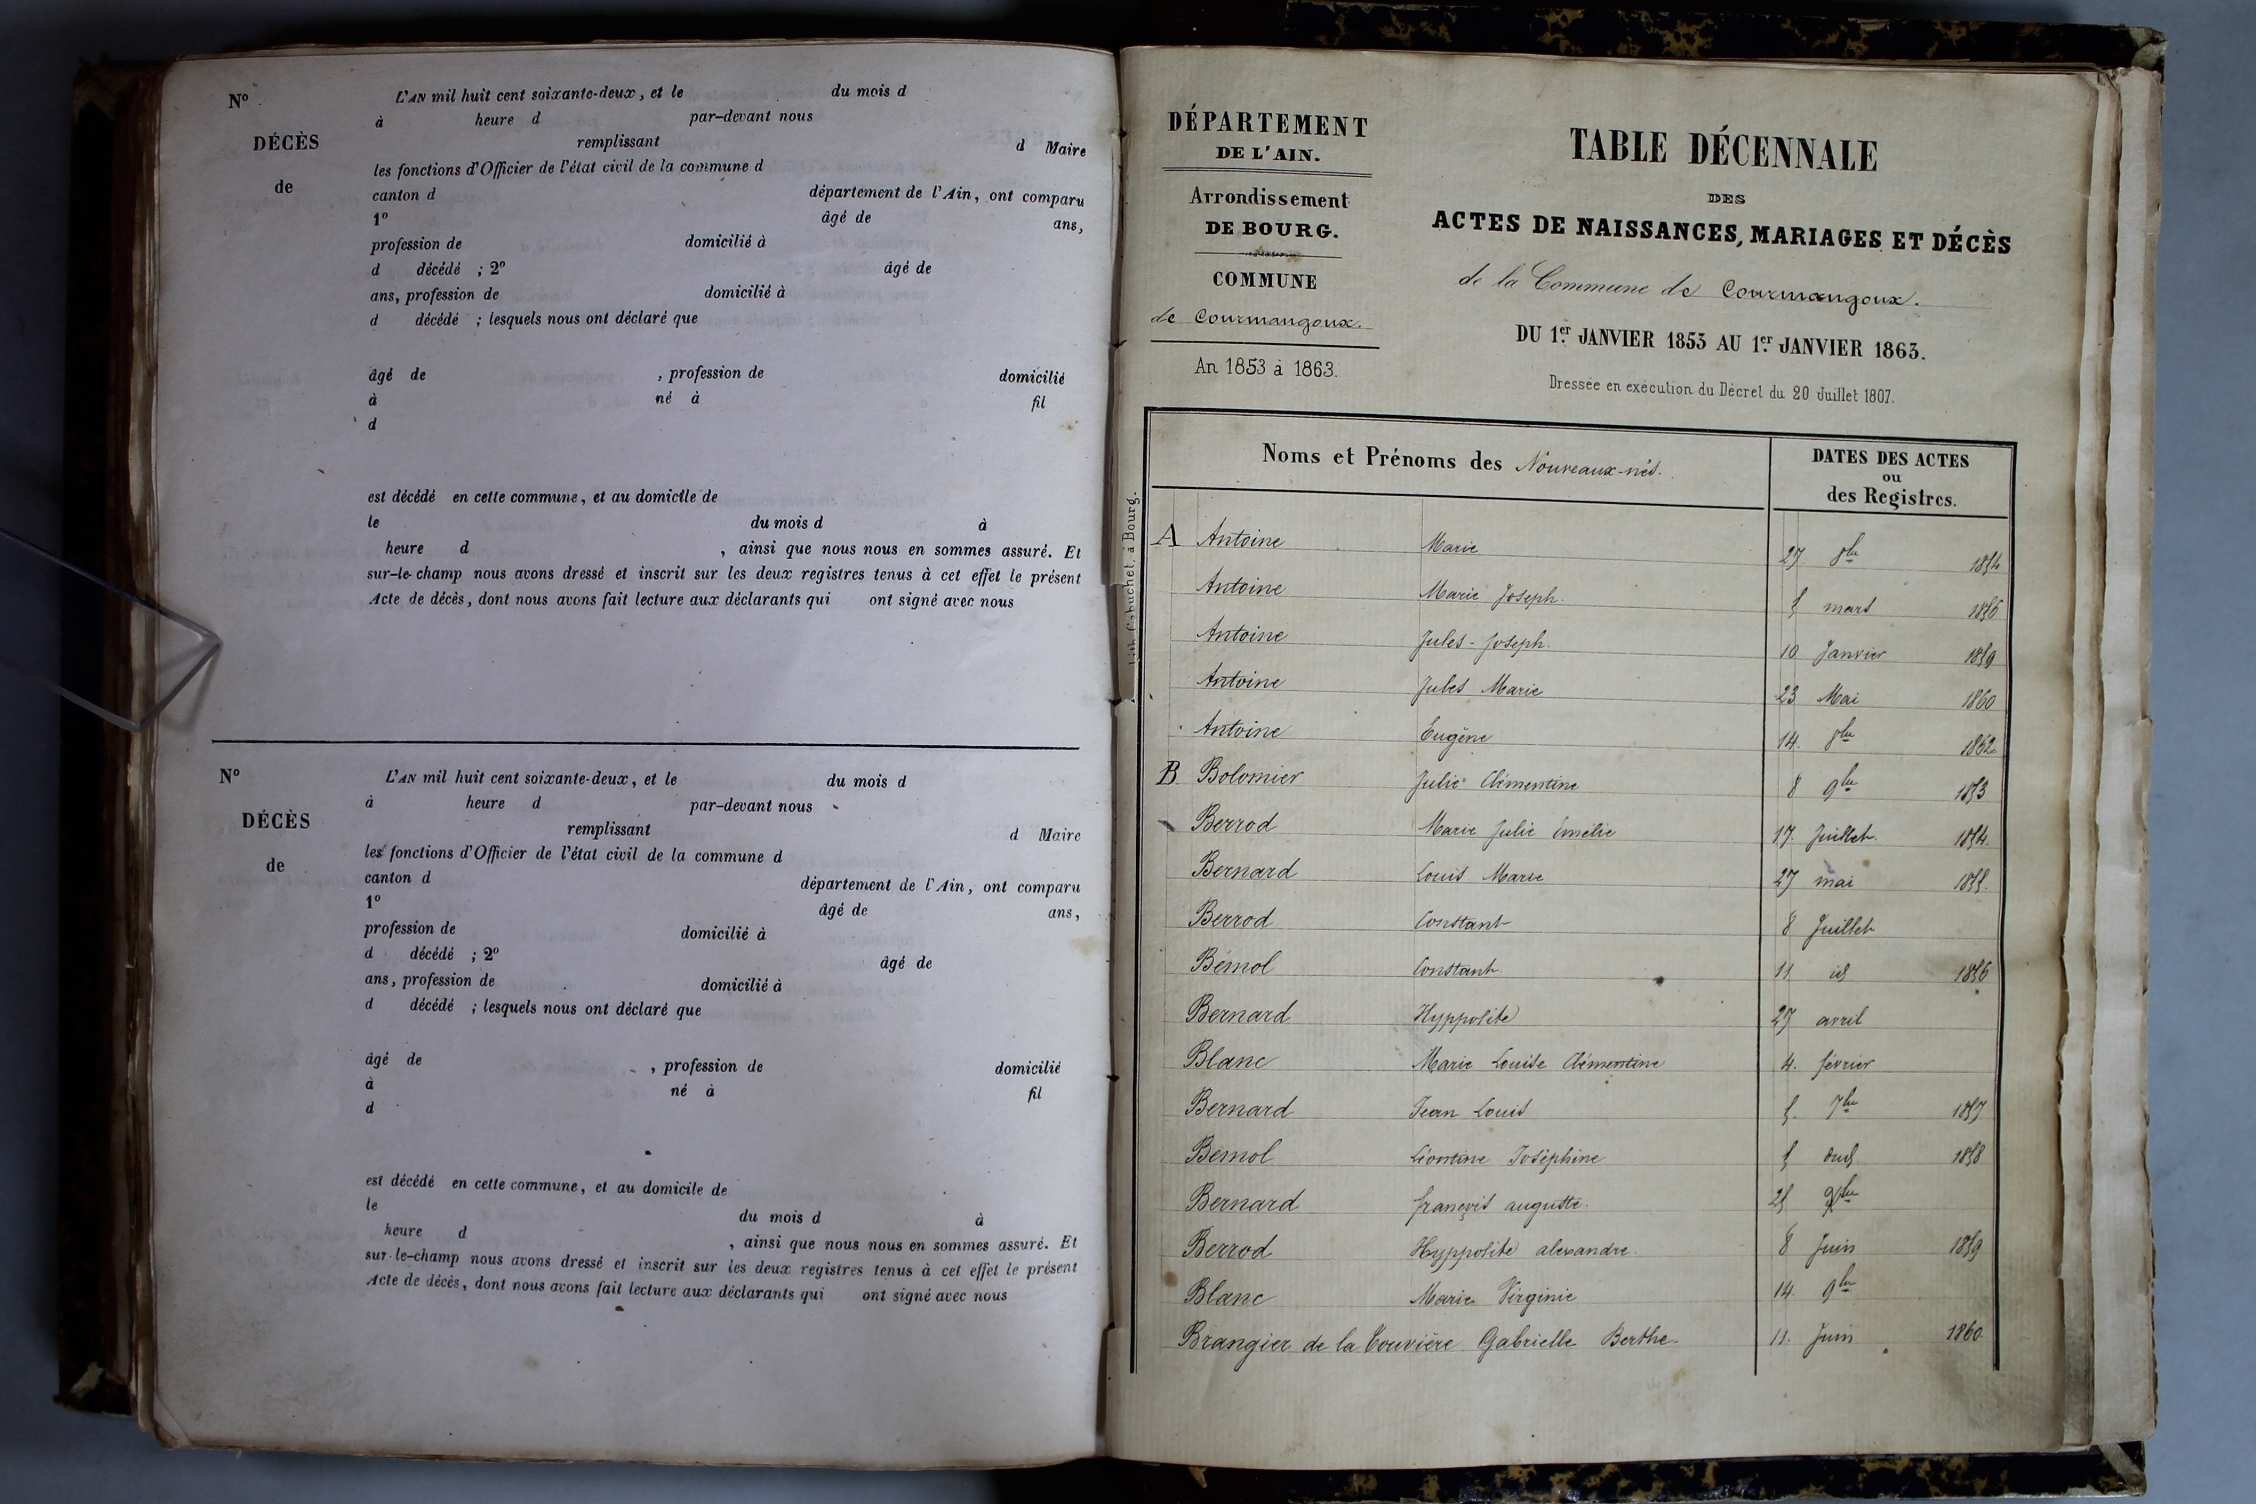 Nº
L'AN mil huit cent soixante-deux, et le du mois d
à heure d par-devant nous
DÉCÈS
remplissant d Maire
les fonctions d'Officier de l'état civil de la commune d
de
canton d département de l'Ain, ont comparu
1º âgé de ans,
profession de domicilié à
d décédé ; 2º âgé de
ans, profession de domicilié à
d décédé ; lesquels nous ont déclaré que
âgé de , profession de domicilié
à né à fil
d
est décédé en cette commune, et au domicile de
le du mois d à
heure d , ainsi que nous nous en sommes assuré. Et
sur-le-champ nous avons dressé et inscrit sur les deux registres tenus à cet effet le présent
Acte de décès, dont nous avons fait lecture aux déclarants qui ont signé avec nous
Nº
L'AN mil huit cent soixante-deux, et le du mois d
à heure d par-devant nous
DÉCÈS
remplissant d Maire
les fonctions d'Officier de l'état civil de la commune d
de
canton d département de l'Ain, ont comparu
1º âgé de ans,
profession de domicilié à
d décédé ; 2º âgé de
ans, profession de domicilié à
d décédé ; lesquels nous ont déclaré que
âgé de , profession de domicilié
à né à fil
d
est décédé en cette commune, et au domicile de
le du mois d à
heure d , ainsi que nous nous en sommes assuré. Et
sur-le-champ nous avons dressé et inscrit sur les deux registres tenus à cet effet le présent
Acte de décès, dont nous avons fait lecture aux déclarants qui ont signé avec nous
DÉPARTEMENT
DE L'AIN.
Arrondissement
DE BOURG.
COMMUNE
de Courmangoux.
An 1853 à 1863.
TABLE DÉCENNALE
DES
ACTES DE NAISSANCES, MARIAGES ET DÉCÈS
de la Commune de Courmangoux.
DU 1er JANVIER 1853 AU 1er JANVIER 1863.
Dressée en exécution du Décret du 20 Juillet 1807.
à Bourg.
Noms et Prénoms des Nouveaux-nés.
DATES DES ACTES
ou
des Registres.
A Antoine Marie 27 8bre 1854
Antoine Marie Joseph. 5 mars 1856
Antoine Jules-Joseph. 10 Janvier 1859
Antoine Jules Marie 23 Mai 1860
Antoine Eugène 14. 8bre 1862
B Bolomier Julie Clémentine 8 9bre 1853
Berrod Marie Julie Emélie 17. Juillet 1854.
Bernard Louis Marie 27 mai 1855.
Berrod Constant 8 Juillet
Bémol Constant 11. id 1856
Bernard Hyppolite 27 avril
Blanc Marie Louise Clémentine 4. février
Bernard Jean Louis 5. 7bre 1857
Bemol Léontine Joséphine 5 1858
Bernard françois auguste. 25
Berrod Hyppolite alexandre. 8 Juin 1859
Blanc Marie Virginie 14. 9bre
Brangier de la Touvière Gabrielle Berthe 11. Juin 1860